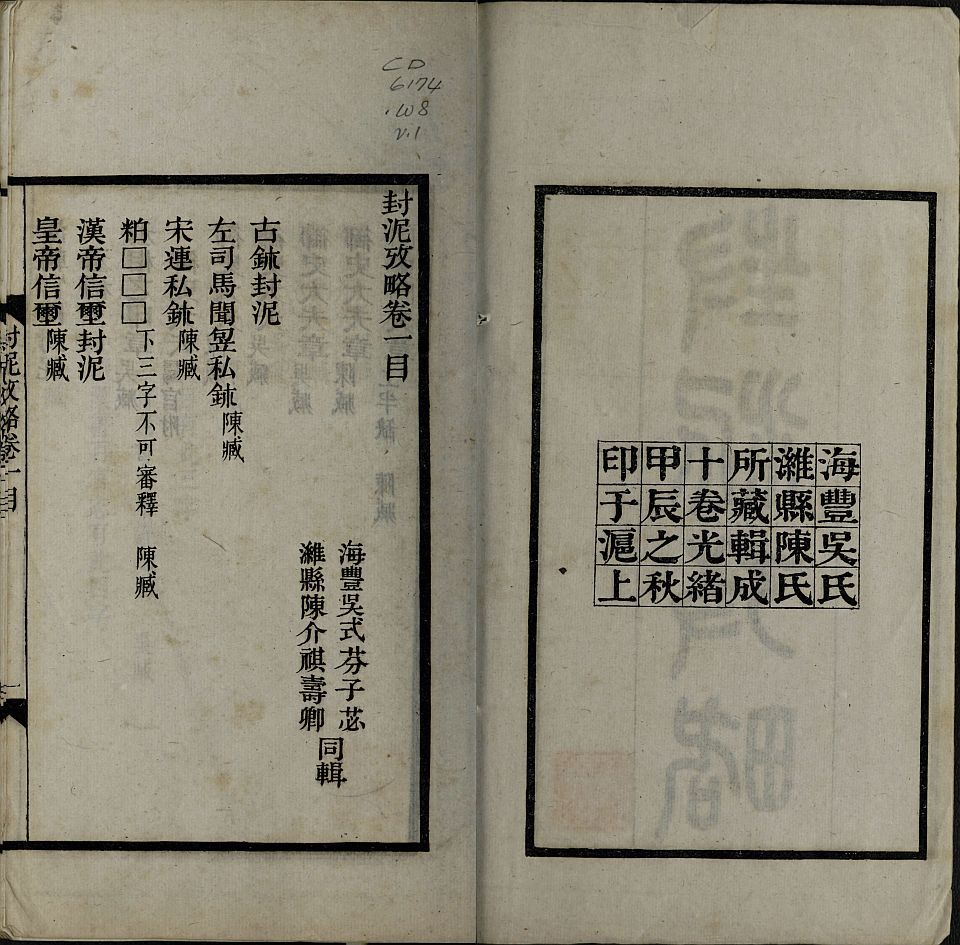 海豐吳氏
濰縣陳氏
所藏輯成
十卷光緒
甲辰之秋
印于滬上
CD
6174
.W8
v.1
封泥攷略卷一目
海豐吳式芬子苾
濰縣陳介祺壽卿
同輯
古鉨封泥
左司馬聞竘私鉨 陳臧
宋連私鉨 陳臧
粕□□□ 下三字不可審釋 陳臧
漢帝信璽封泥
皇帝信璽 陳臧
封泥攷略卷一目
一